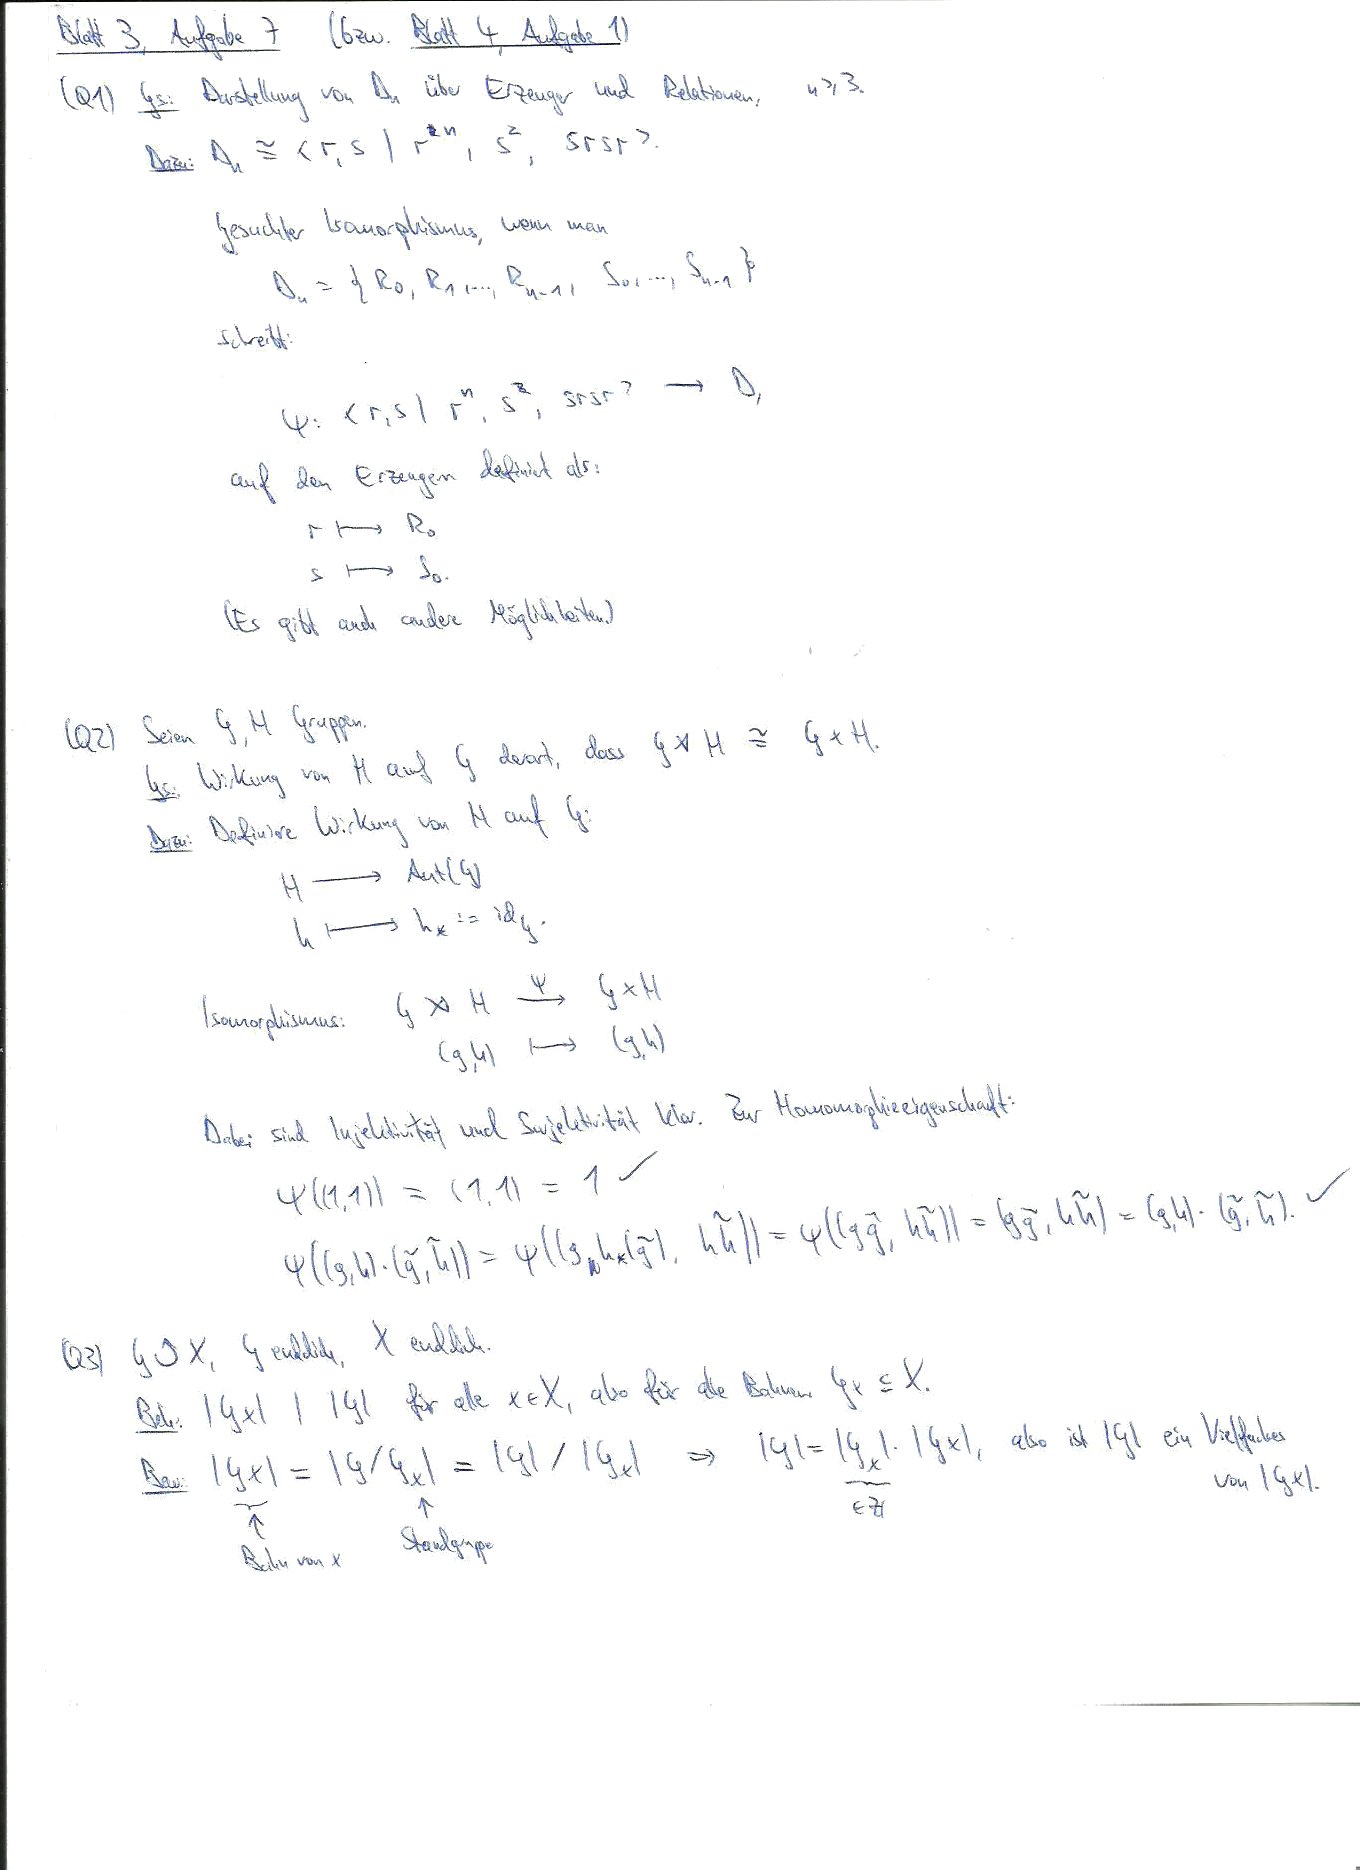 Blatt 3, Aufgabe 7 (bzw. Blatt 4, Aufgabe 1)
(Q1) Ges: Darstellung von Dₙ über Erzeuger und Relationen, n ≥ 3.
Dazu: Dₙ ≅ < r, s | rⁿ, s², srsr >.
Gesuchter Isomorphismus, wenn man
Dₙ = { R₀, R₁, ..., Rₙ₋₁, S₀, ..., Sₙ₋₁ }
schreibt:
ψ: < r, s | rⁿ, s², srsr > ⟶ Dₙ
auf den Erzeugern definiert als:
r ⟼ R₀
s ⟼ S₀.
(Es gibt auch andere Möglichkeiten.)
(Q2) Seien G, H Gruppen.
Ges: Wirkung von H auf G derart, dass G ⋊ H ≅ G × H.
Dazu: Definiere Wirkung von H auf G:
H ⟶ Aut(G)
h ⟼ h⁎ := id_G.
Isomorphismus: G ⋊ H ⟶ψ G × H
(g,h) ⟼ (g,h)
Dabei sind Injektivität und Surjektivität klar. Zur Homomorphieeigenschaft:
ψ((1,1)) = (1,1) = 1 ✓
ψ((g,h)·(g̃,h̃)) = ψ((g h⁎(g̃), hh̃)) = ψ((gg̃, hh̃)) = (gg̃, hh̃) = (g,h)·(g̃,h̃). ✓
(Q3) G ↻ X, G endlich, X endlich.
Beh: |Gx| | |G| für alle x ∈ X, also für alle Bahnen Gx ⊆ X.
Bew: |Gx| = |G/Gₓ| = |G| / |Gₓ| ⇒ |G| = |Gₓ| · |Gx|, also ist |G| ein Vielfaches
von |Gx|.
∈ ℤ
↑ ↑
Bahn von x Standgruppe